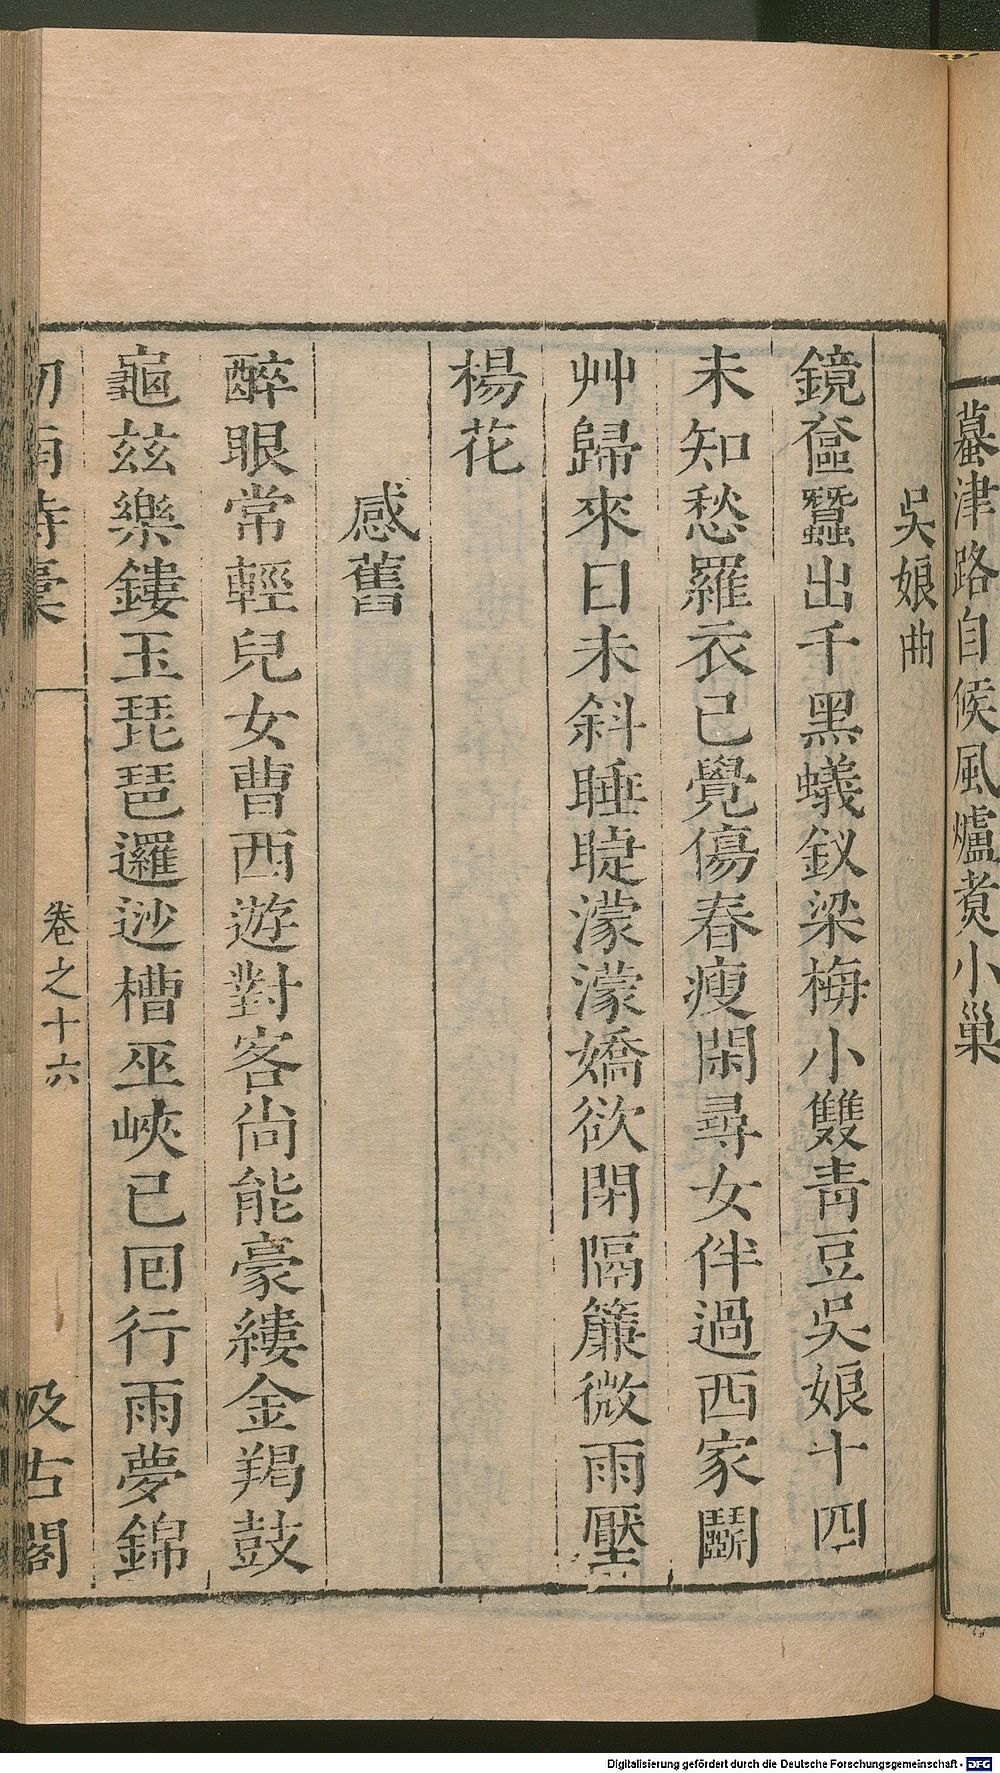 蟇津路自候風爐煮小巢
吳娘曲
鏡奩蠶出千黑蟻釵梁梅小雙青豆吳娘十四
未知愁羅衣已覺傷春瘦閑尋女伴過西家鬭
艸歸來日未斜睡睫濛濛嬌欲閉隔簾微雨壓
楊花
感舊
醉眼常輕兒女曹西遊對客尚能豪縷金羯鼓
龜玆樂鏤玉琵琶邏逤槽巫峽已囘行雨夢錦
劍南詩稾
卷之十六
汲古閣
Digitalisierung gefördert durch die Deutsche Forschungsgemeinschaft - DFG